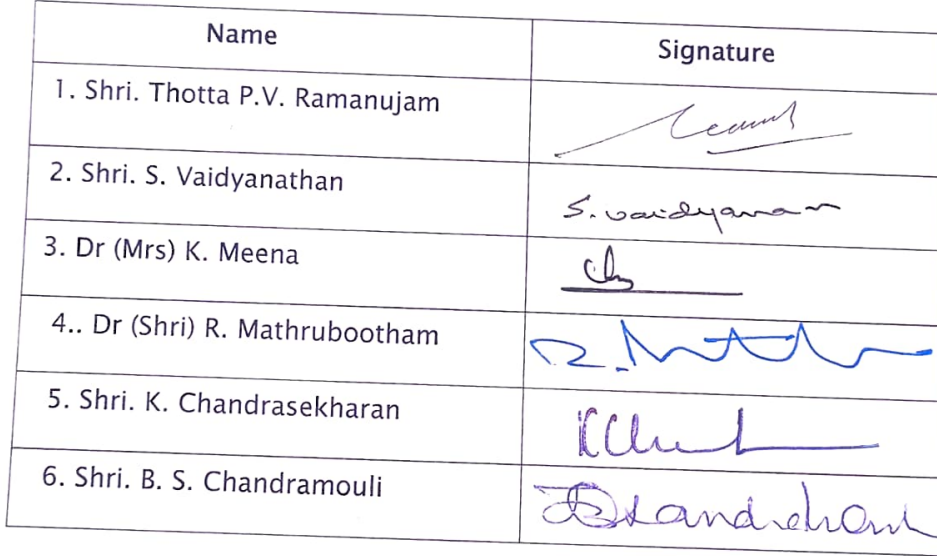 Name Signature
1. Shri. Thotta P.V. Ramanujam
2. Shri. S. Vaidyanathan S. Vaidyana
3. Dr (Mrs) K. Meena
4.. Dr (Shri) R. Mathrubootham
5. Shri. K. Chandrasekharan
6. Shri. B. S. Chandramouli